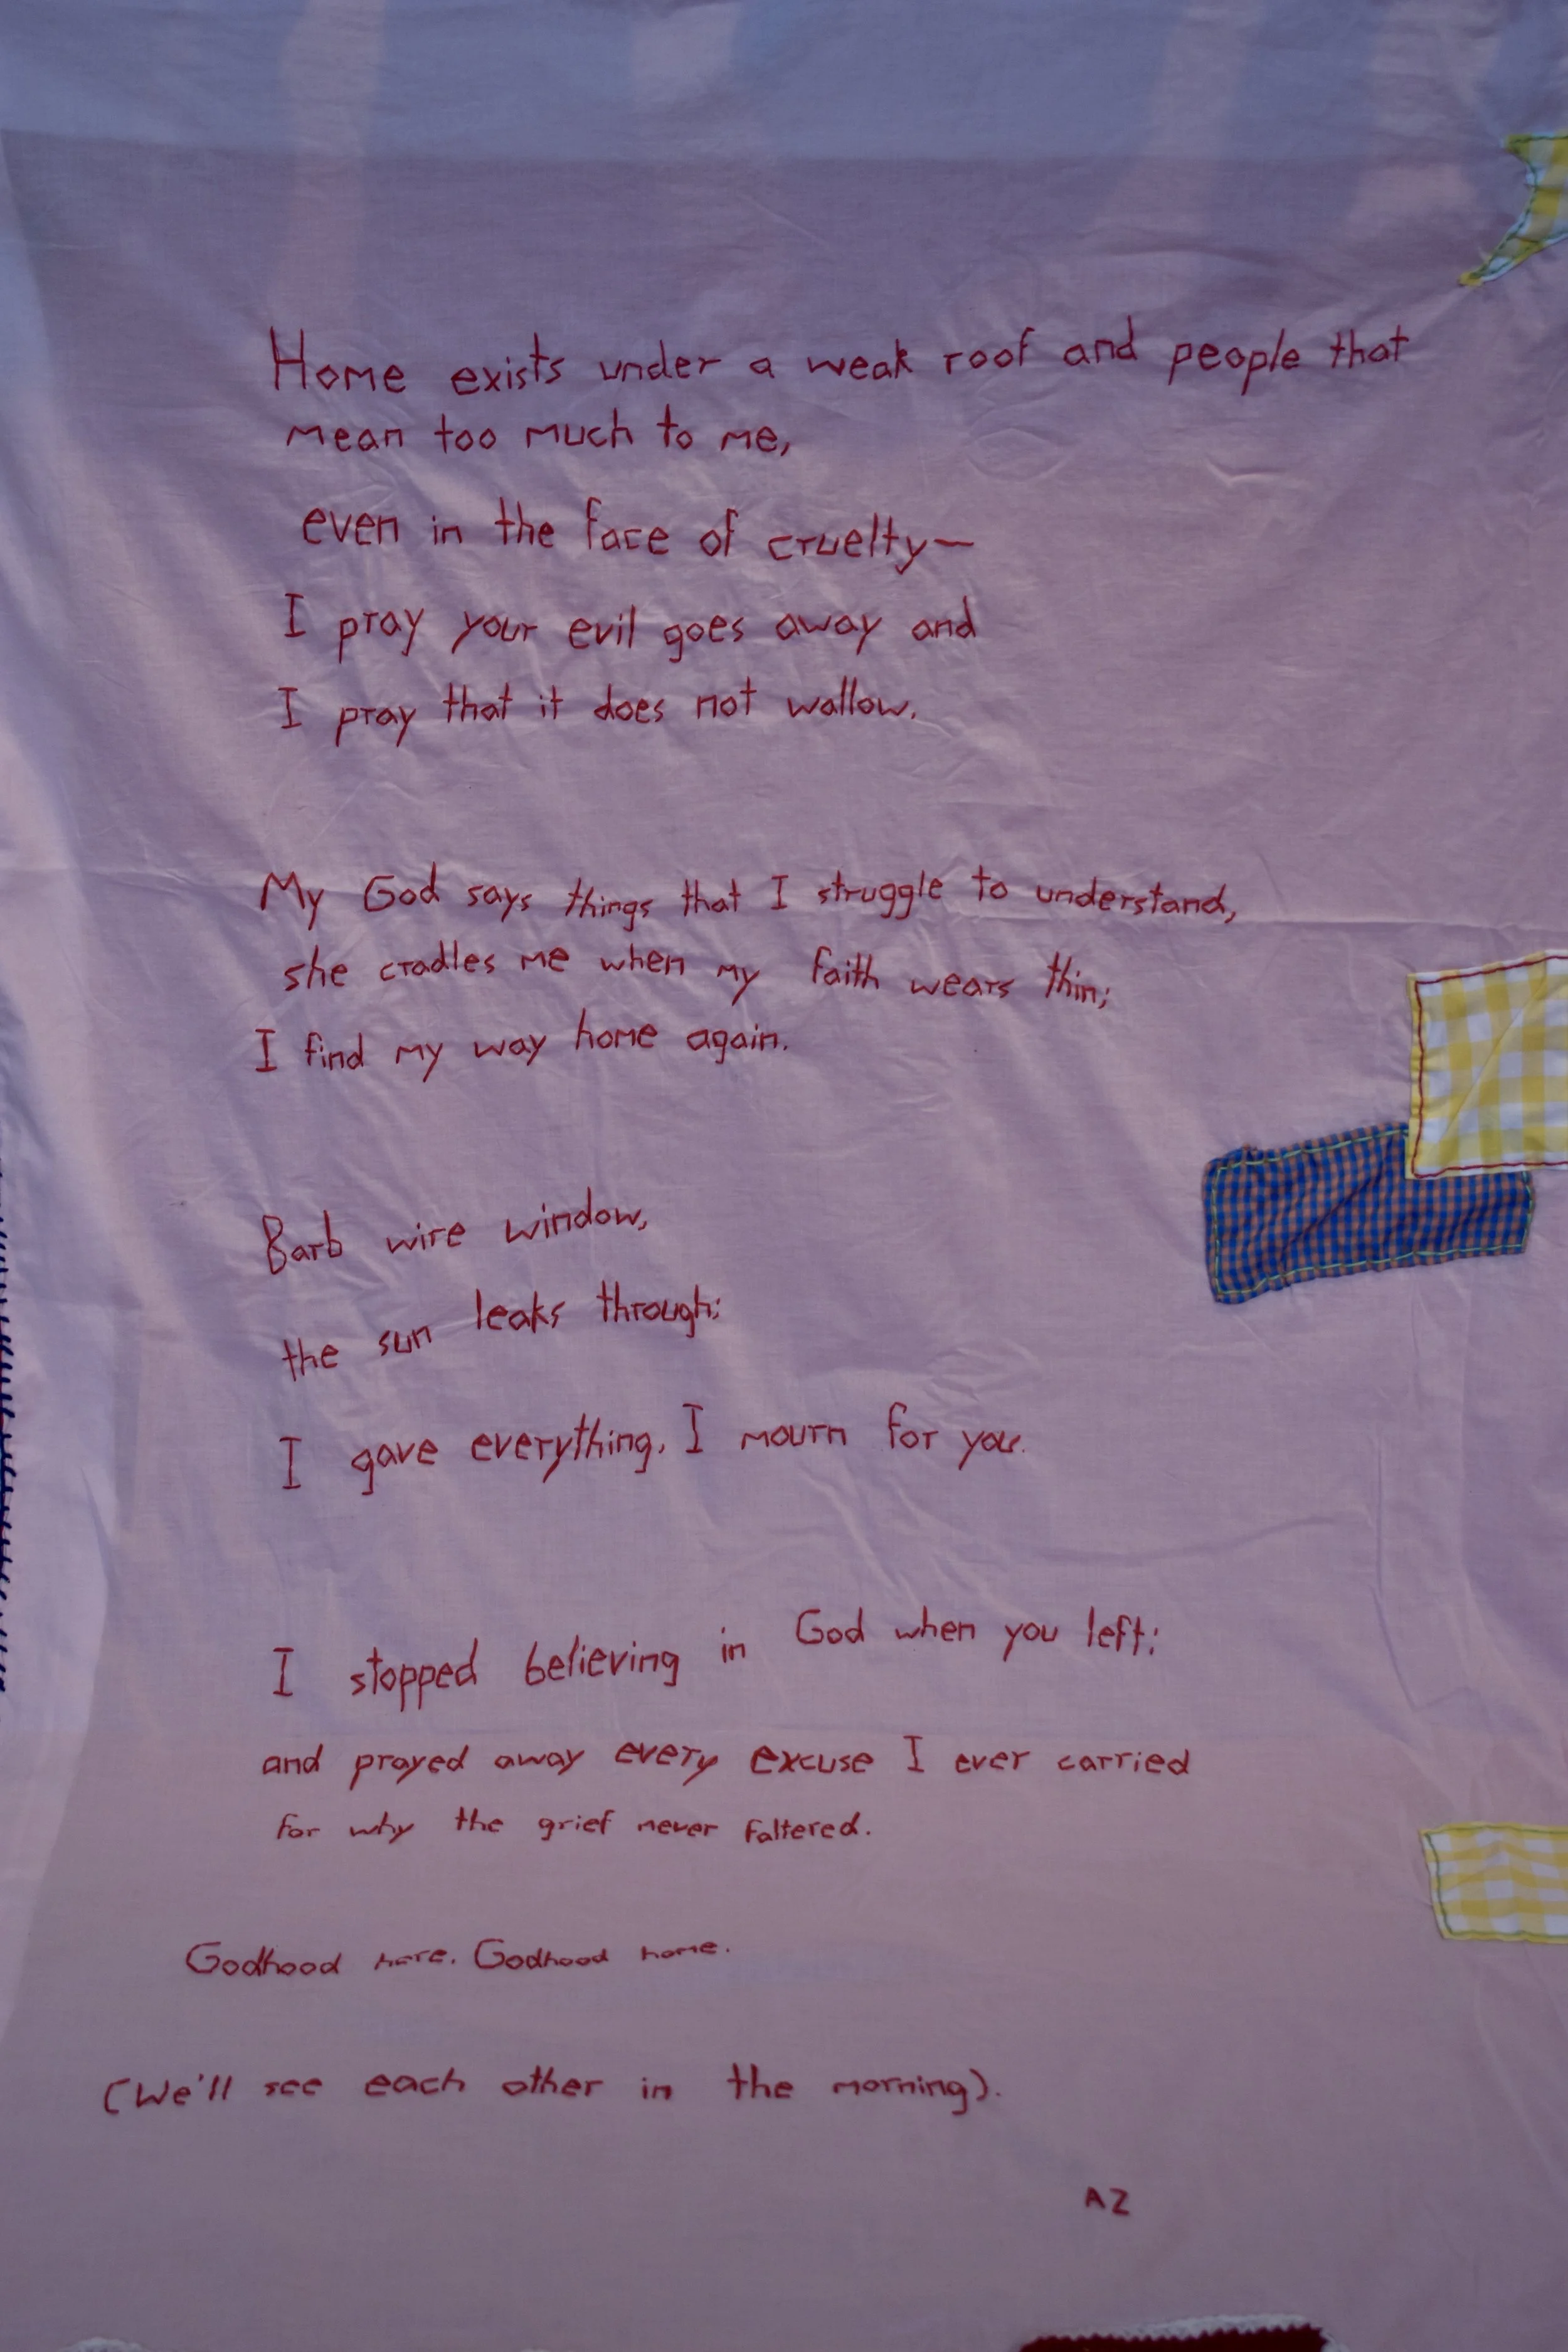 Home exists under a weak roof and people that
mean too much to me,
even in the face of cruelty—
I pray your evil goes away and
I pray that it does not wallow.
My God says things that I struggle to understand,
she cradles me when my faith wears thin;
I find my way home again.
Barb wire window,
the sun leaks through;
I gave everything. I mourn for you.
I stopped believing in God when you left;
and prayed away every excuse I ever carried
for why the grief never faltered.
Godhood here. Godhood home.
(We'll see each other in the morning).
AZ